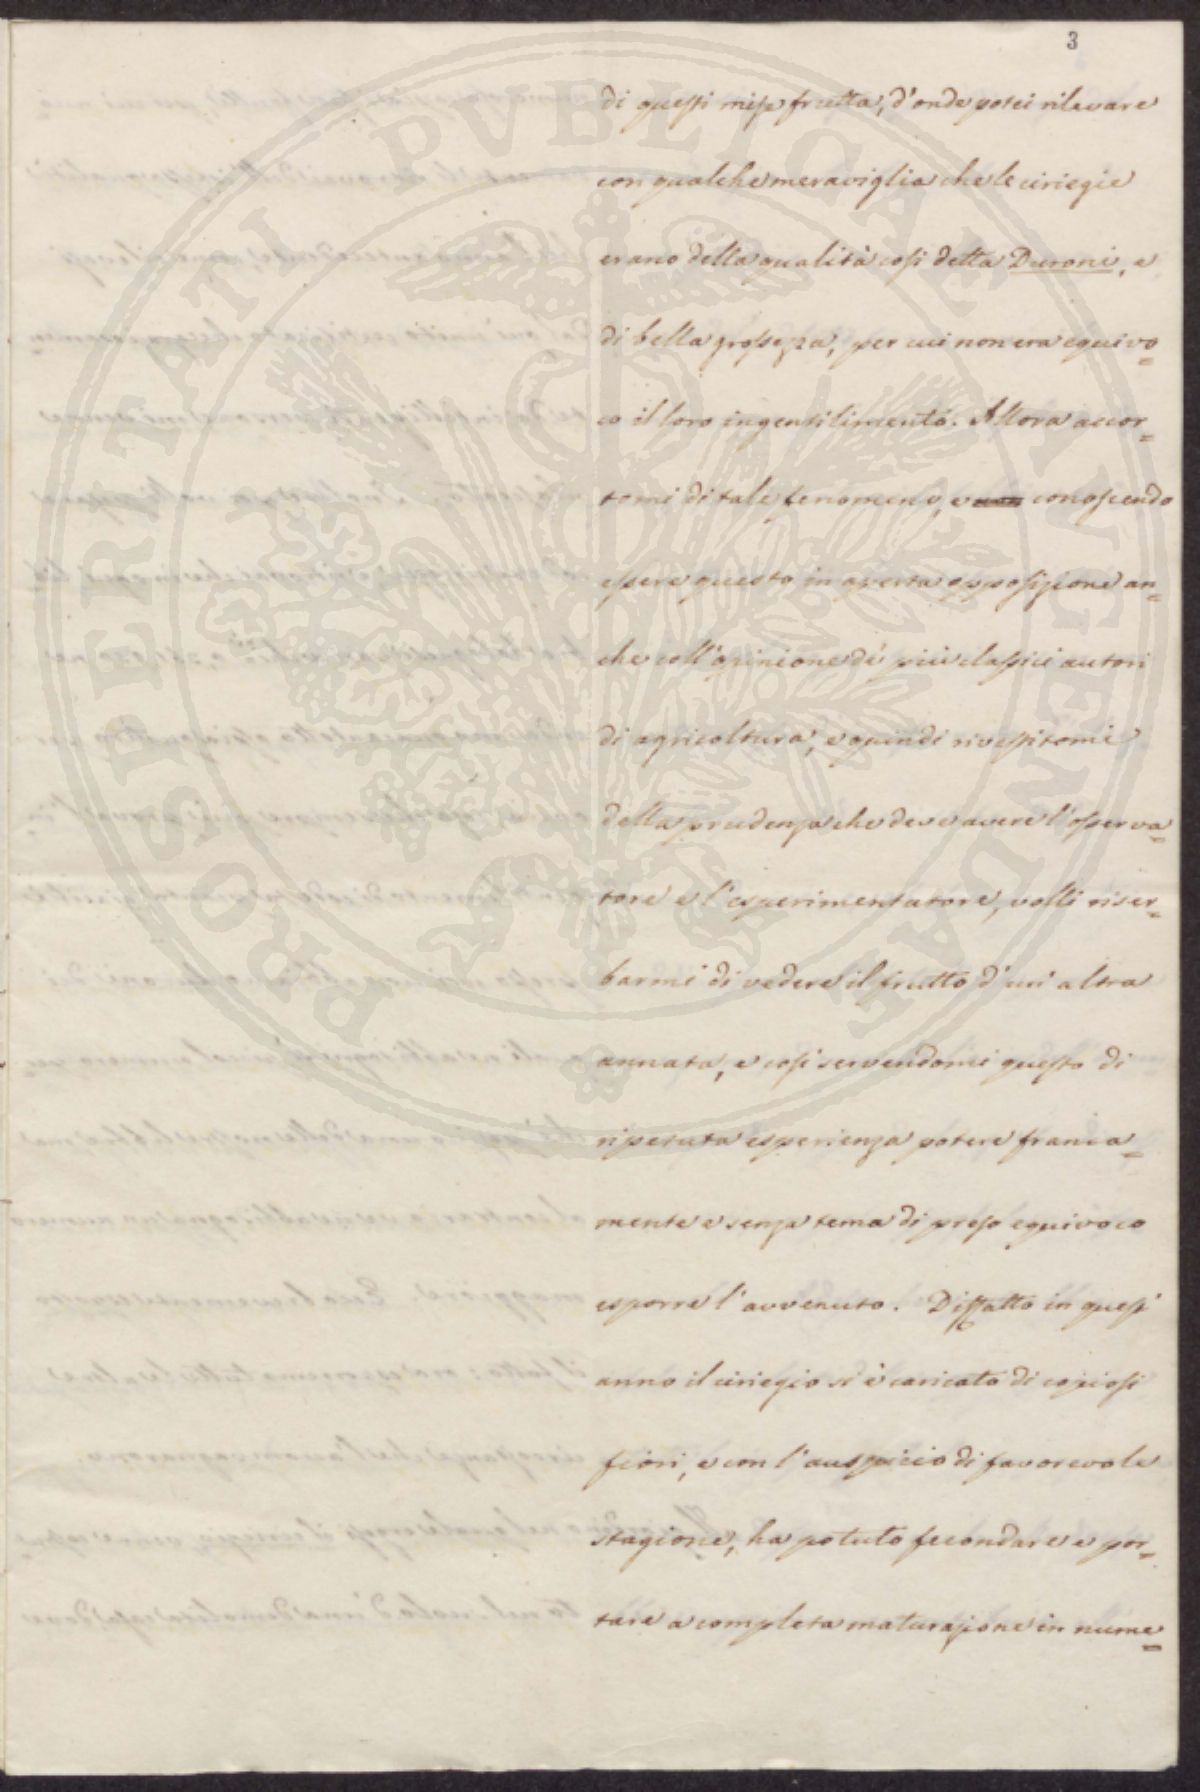 3
di questi mise frutta, d'onde potei rilevare
con qualche meraviglia che le ciriegie
erano della qualità così detta Duroni, e
di bella grossezza, per cui non era equivo=
co il loro ingentilimento. Allora accor=
tomi di tale fenomeno, e conoscendo
essere questo in aperta opposizione an=
che coll'opinione de' più classici autori
di agricoltura, e quindi rivestitomi
della prudenza che deve avere l'osserva=
tore e l'esperimentatore, volli riser=
barmi di vedere il frutto d'un'altra
annata, e così servendomi questo di
ripetuta esperienza potere franca=
mente e senza tema di preso equivoco
esporre l'avvenuto. Diffatto in quest'
anno il ciriegio si è caricato di copiosi
fiori, e con l'auspicio di favorevole
stagione, ha potuto fecondare e por=
tare a completa maturazione in nume=
PROSPERITATI PVBLICAE AVGENDAE